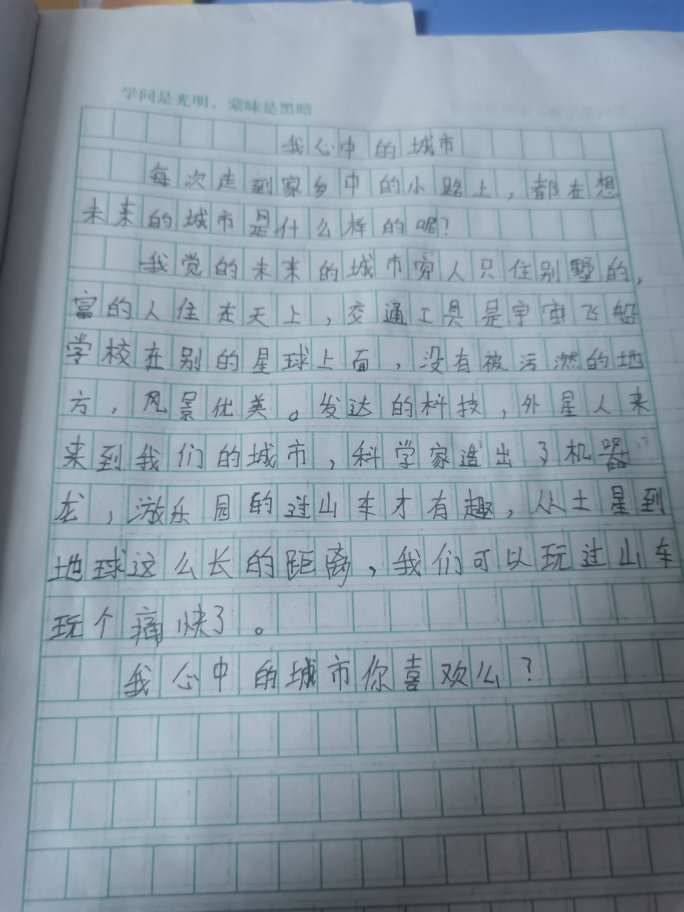 学问是光明，蒙昧是黑暗
我心中的城市
每次走到家乡中的小路上，都在想
未来的城市是什么样的呢？
我觉的未来的城市穷人只住别墅的，
富的人住在天上，交通工具是宇宙飞船
学校在别的星球上面，没有被污燃的地
方，风景优美。发达的科技，外星人来
来到我们的城市，科学家造出了机器
龙，游乐园的过山车才有趣，从土星到
地球这么长的距离，我们可以玩过山车
玩个痛快了。
我心中的城市你喜欢么？